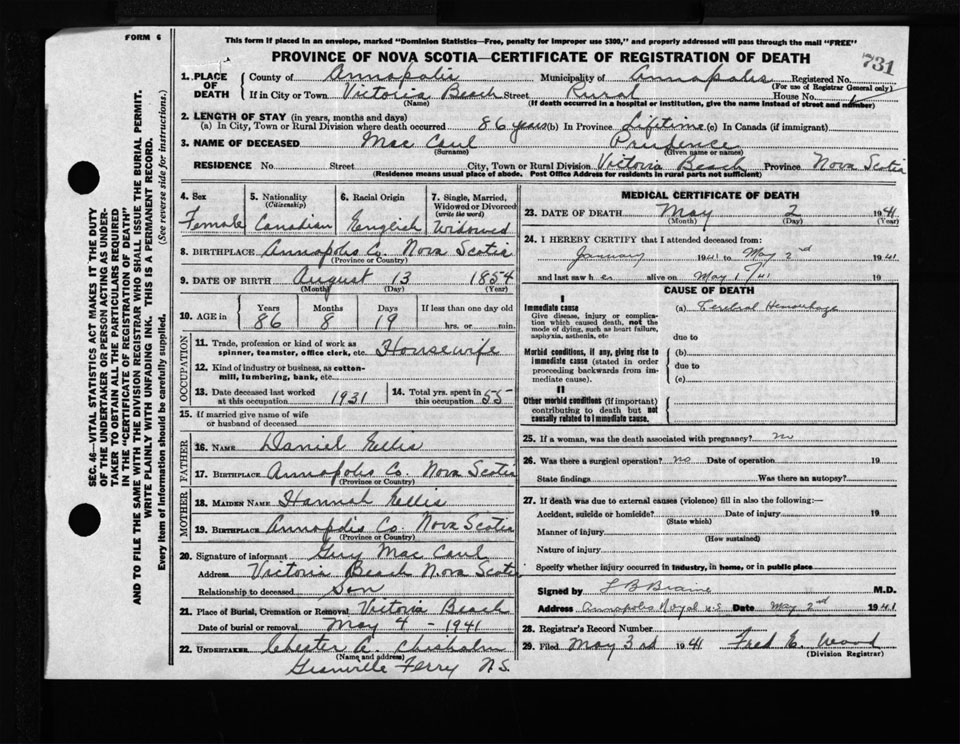 FORM 6
This form if placed in an envelope, marked "Dominion Statistics—Free, penalty for improper use $300," and properly addressed will pass through the mail "FREE"
PROVINCE OF NOVA SCOTIA—CERTIFICATE OF REGISTRATION OF DEATH
731
1. PLACE OF DEATH
County of Annapolis Municipality of Annapolis Registered No.
(For use of Registrar General only)
If in City or Town Victoria Beach Street Rural House No.
(Name) (If death occurred in a hospital or institution, give the name instead of street and number)
2. LENGTH OF STAY (in years, months and days)
(a) In City, Town or Rural Division where death occurred 86 years (b) In Province Lifetime (c) In Canada (if immigrant)
3. NAME OF DECEASED Mac Caul Prudence
(Surname) (Given name or names)
RESIDENCE No. Street City, Town or Rural Division Victoria Beach Province Nova Scotia
(Residence means usual place of abode. Post Office Address for residents in rural parts not sufficient)
4. Sex Female
5. Nationality (Citizenship) Canadian
6. Racial Origin English
7. Single, Married, Widowed or Divorced (write the word) Widowed
8. BIRTHPLACE Annapolis Co. Nova Scotia
(Province or Country)
9. DATE OF BIRTH August 13 1854
(Month) (Day) (Year)
10. AGE in Years Months Days If less than one day old
86 8 19 hrs. or min.
OCCUPATION
11. Trade, profession or kind of work as spinner, teamster, office clerk, etc. Housewife
12. Kind of industry or business, as cotton-mill, lumbering, bank, etc.
13. Date deceased last worked at this occupation 1931
14. Total yrs. spent in this occupation 55
15. If married give name of wife or husband of deceased
FATHER
16. NAME Daniel Ellis
17. BIRTHPLACE Annapolis Co. Nova Scotia
(Province or Country)
MOTHER
18. MAIDEN NAME Hannah Ellis
19. BIRTHPLACE Annapolis Co. Nova Scotia
(Province or Country)
20. Signature of informant Guy Mac Caul
Address Victoria Beach Nova Scotia
Relationship to deceased Son
21. Place of Burial, Cremation or Removal Victoria Beach
Date of burial or removal May 4 - 1941
22. UNDERTAKER Chester A. Chisholm
(Name and address)
Granville Ferry N.S.
MEDICAL CERTIFICATE OF DEATH
23. DATE OF DEATH May 2 1941
(Month) (Day) (Year)
24. I HEREBY CERTIFY that I attended deceased from:
January 1941 to May 2nd 1941
and last saw her alive on May 1/41 19
CAUSE OF DEATH
I
Immediate cause
Give disease, injury or complication which caused death, not the mode of dying, such as heart failure, asphyxia, asthenia, etc
(a)
due to
Morbid conditions, if any, giving rise to immediate cause (stated in order proceeding backwards from immediate cause).
(b)
due to
(c)
II
Other morbid conditions (if important) contributing to death but not causally related to immediate cause.
25. If a woman, was the death associated with pregnancy? no
26. Was there a surgical operation? no Date of operation 19
State findings Was there an autopsy?
27. If death was due to external causes (violence) fill in also the following:—
Accident, suicide or homicide? Date of injury 19
(State which)
Manner of injury
(How sustained)
Nature of injury
Specify whether injury occurred in industry, in home, or in public place
Signed by L B Braine M.D.
Address Annapolis Royal N.S Date May 2nd 1941
28. Registrar's Record Number
29. Filed May 3rd 1941 Fred E. Wood
(Division Registrar)
SEC. 46—VITAL STATISTICS ACT MAKES IT THE DUTY
OF THE UNDERTAKER OR PERSON ACTING AS UNDER-
TAKER TO OBTAIN ALL THE PARTICULARS REQUIRED
IN THE "CERTIFICATE OF REGISTRATION OF DEATH"
AND TO FILE THE SAME WITH THE DIVISION REGISTRAR WHO SHALL ISSUE THE BURIAL PERMIT.
WRITE PLAINLY WITH UNFADING INK. THIS IS A PERMANENT RECORD.
Every item of information should be carefully supplied. (See reverse side for instructions.)